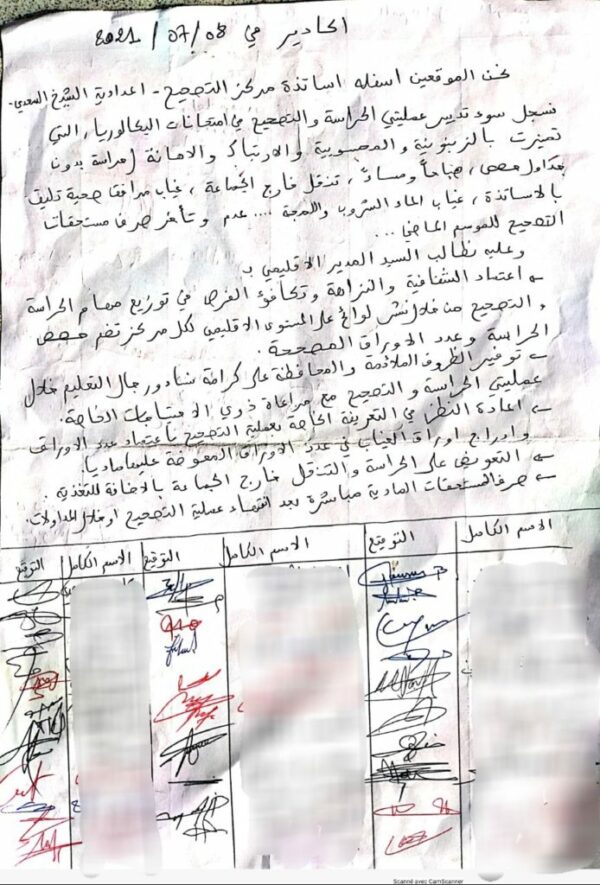 اكادير في 08/07/2021
نحن الموقعين اسفله اساتذة مركز التصحيح - اعدادية الشيخ السعدي -
نسجل سوء تدبير عمليتي الحراسة والتصحيح في امتحانات البكالوريا، التي
تميزت بالزبونية والمحسوبية والارتباك والاهانة (حراسة بدون
جداول حصص، صباحاً ومساءً، تنقل خارج الجماعة، غياب مرافق صحية تليق
بالاساتذة، غياب الماء الشروب واللمجة .... عدم وتأخر صرف مستحقات
التصحيح للموسم الماضي ...
وعليه نطالب السيد المدير الاقليمي بـ
اعتماد الشفافية والنزاهة وتكافؤ الفرص في توزيع مهام الحراسة
و التصحيح من خلال نشر لوائح على المستوى الاقليمي لكل مركز تضم حصص
الحراسة وعدد الاوراق المصححة.
- توفير الظروف الملائمة والمحافظة على كرامة نساء ورجال التعليم خلال
عمليتي الحراسة و التصحيح مع مراعاة ذوي الاحتياجات الخاصة.
- اعادة النظر في التعريفة الخاصة بعملية التصحيح باعتماد عدد الاوراق
و ادراج اوراق الغياب في عدد الاوراق المعوضة عليها ماديا.
- التعويض على الحراسة والتنقل خارج الجماعة بالاضافة للتغذية.
- صرف المستحقات المادية مباشرة بعد انتهاء عملية التصحيح او خلال المداولات.
الاسم الكامل التوقيع الاسم الكامل التوقيع الاسم الكامل التوقيع
Scanné avec CamScanner